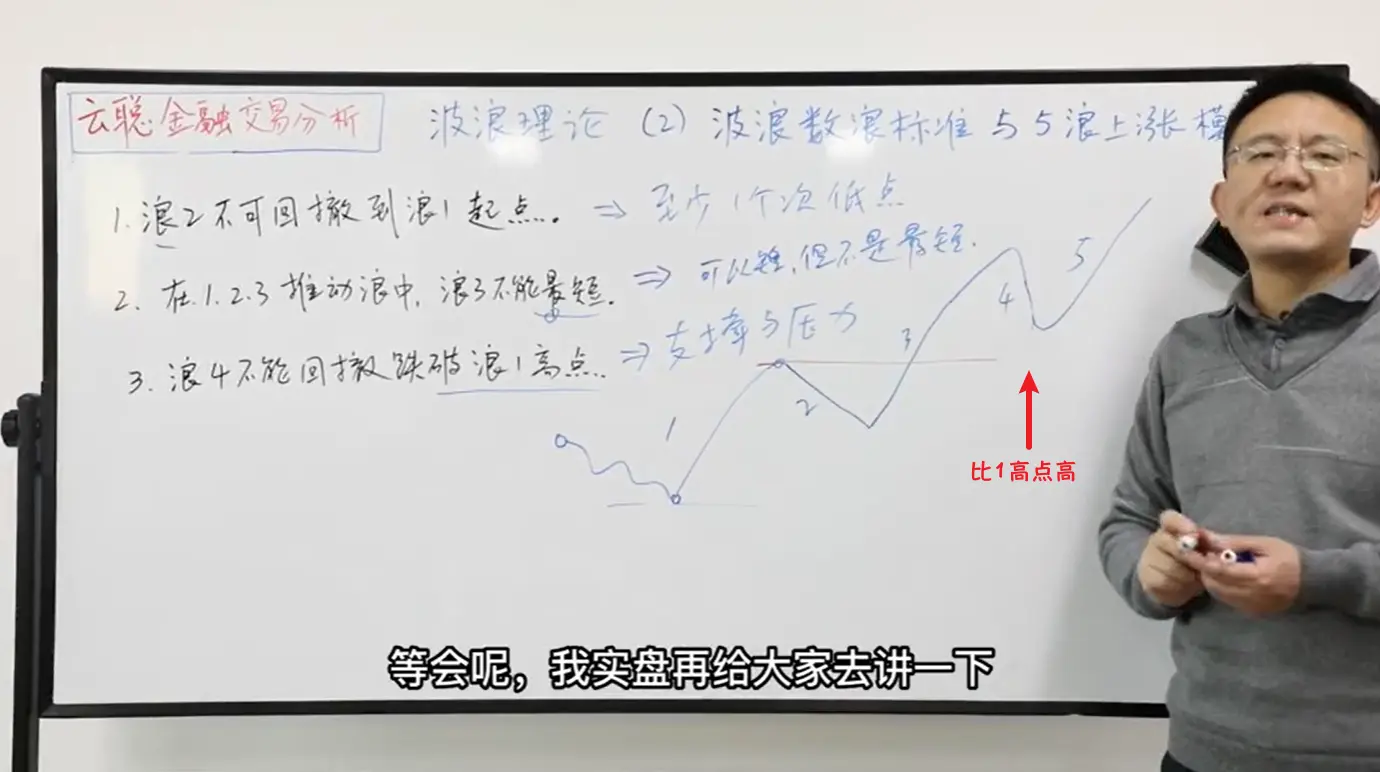 云聪金融交易分析
波浪理论 (2) 波浪数浪标准与5浪上涨模
1. 浪2不可回撤到浪1起点. ⇒ 至少1个次低点
2. 在1.2.3推动浪中, 浪3不能最短. ⇒ 可以短, 但不是最短.
3. 浪4不能回撤跌破浪1高点. ⇒ 支撑与压力
1
2
3
4
5
比1高点高
等会呢，我实盘再给大家去讲一下